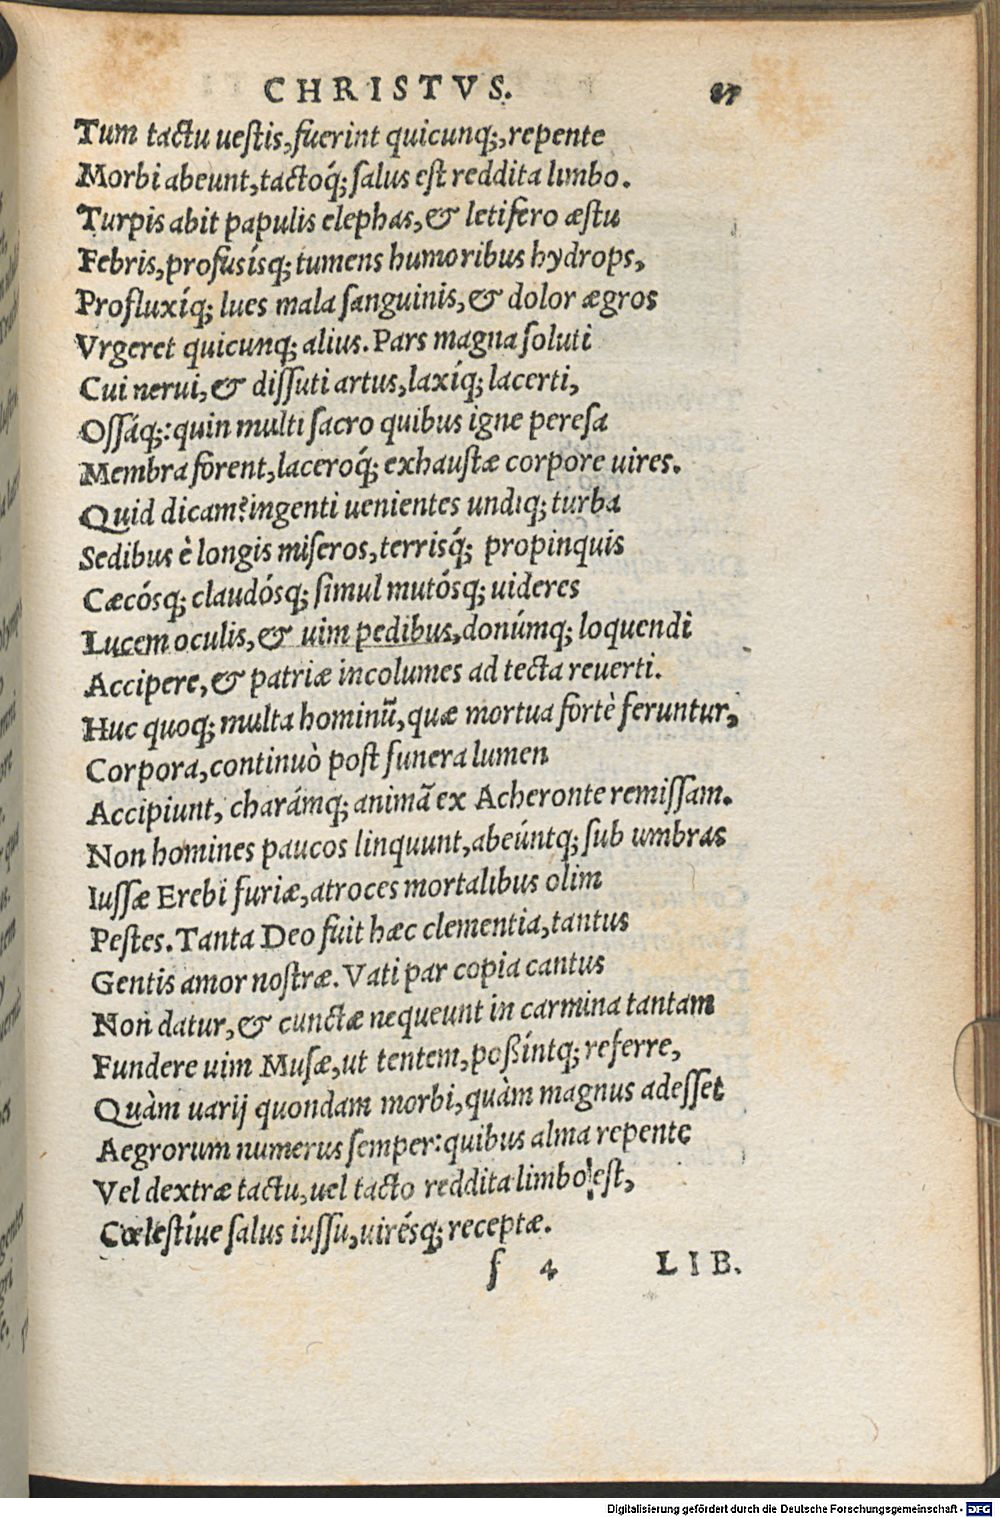 CHRISTVS. 87
Tum tactu uestis, fuerint quicunq;, repente
Morbi abeunt, tactoq́; salus est reddita limbo.
Turpis abit papulis elephas, & letifero æstu
Febris, profusísq; tumens humoribus hydrops,
Profluxíq; lues mala sanguinis, & dolor ægros
Vrgeret quicunq; alius. Pars magna soluti
Cui nerui, & dissuti artus, laxíq; lacerti,
Ossáq;: quin multi sacro quibus igne peresa
Membra forent, laceroq́; exhaustæ corpore uires.
Quid dicam? ingenti uenientes undiq; turba
Sedibus è longis miseros, terrisq́; propinquis
Cæcósq; claudósq; simul mutósq; uideres
Lucem oculis, & uim pedibus, donúmq; loquendi
Accipere, & patriæ incolumes ad tecta reuerti.
Huc quoq; multa hominū, quæ mortua fortè feruntur,
Corpora, continuò post funera lumen
Accipiunt, charámq; animā ex Acheronte remissam.
Non homines paucos linquunt, abeúntq; sub umbras
Iussæ Erebi furiæ, atroces mortalibus olim
Pestes. Tanta Deo fuit hæc clementia, tantus
Gentis amor nostræ. Vati par copia cantus
Non datur, & cunctæ nequeunt in carmina tantam
Fundere uim Musæ, ut tentem, poßíntq; referre,
Quàm uarij quondam morbi, quàm magnus adesset
Aegrorum numerus semper: quibus alma repente
Vel dextræ tactu, uel tacto reddita limbo est,
Cœlestíue salus iussu, uirésq; receptæ.
f 4 LIB.
Digitalisierung gefördert durch die Deutsche Forschungsgemeinschaft - DFG